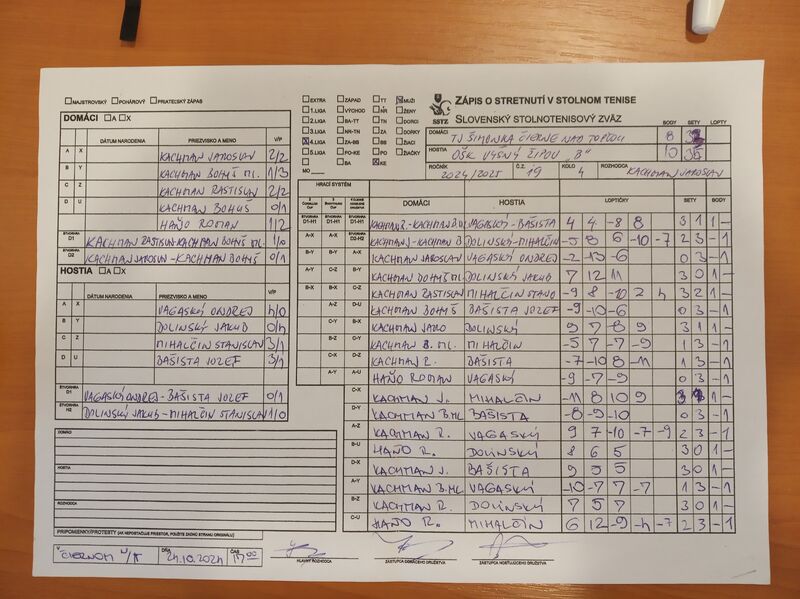 MAJSTROVSKÝ POHÁROVÝ PRIATEĽSKÝ ZÁPAS
DOMÁCI A X
DÁTUM NARODENIA PRIEZVISKO A MENO V/P
A X KACHMAN JAROSLAV 2/2
B Y KACHMAN BOHUŠ ML. 1/3
C Z KACHMAN RASTISLAV 2/2
D U KACHMAN BOHUŠ 0/1
HAŇO ROMAN 1/2
ŠTVORHRA D1 KACHMAN RASTISLAV-KACHMAN BOHUŠ ML. 1/0
ŠTVORHRA D2 KACHMAN JAROSLAV-KACHMAN BOHUŠ 0/1
HOSTIA A X
DÁTUM NARODENIA PRIEZVISKO A MENO V/P
A X VAGASKÝ ONDREJ 4/0
B Y DOLINSKÝ JAKUB 0/4
C Z MIHALČIN STANISLAV 3/1
D U BAŠISTA JOZEF 3/1
ŠTVORHRA D1 VAGASKÝ ONDREJ-BAŠISTA JOZEF 0/1
ŠTVORHRA H2 DOLINSKÝ JAKUB-MIHALČIN STANISLAV 1/0
DOMÁCI
HOSTIA
ROZHODCA
PRIPOMIENKY/PROTESTY (AK NEPOSTAČUJE PRIESTOR, POUŽITE ZADNÚ STRANU ORIGINÁLU)
V ČIERNOM N/T DŇA 24.10.2024 ČAS 17:00
HLAVNÝ ROZHODCA ZÁSTUPCA DOMÁCEHO DRUŽSTVA ZÁSTUPCA HOSŤUJÚCEHO DRUŽSTVA
EXTRA ZÁPAD TT MUŽI
1.LIGA VÝCHOD NR ŽENY
2.LIGA BA-TT TN DORCI
3.LIGA NR-TN ZA DORKY
4.LIGA ZA-BB BB ŽIACI
5.LIGA PO-KE PO ŽIAČKY
BA KE
MO
SSTZ
ZÁPIS O STRETNUTÍ V STOLNOM TENISE
SLOVENSKÝ STOLNOTENISOVÝ ZVÄZ
BODY SETY LOPTY
DOMÁCI TJ ŠIMONKA ČIERNE NAD TOPĽOU 8
HOSTIA OŠK VYŠNÝ ŽIPOV "B" 10 35
ROČNÍK 2024/2025 Č.Z. 19 KOLO 4 ROZHODCA KACHMAN JAROSLAV
HRACÍ SYSTÉM
DOMÁCI HOSTIA LOPTIČKY SETY BODY
D1-H1 KACHMAN R.-KACHMAN B.ML VAGASKÝ-BAŠISTA 4 4 -8 8 3 1 1 -
D2-H2 KACHMAN J-KACHMAN B. DOLINSKÝ-MIHALČIN -5 8 6 -10 -7 2 3 - 1
A-X KACHMAN JAROSLAV VAGASKÝ ONDREJ -2 -13 -6 0 3 - 1
B-Y KACHMAN BOHUŠ ML. DOLINSKÝ JAKUB 7 12 11 3 0 1 -
C-Z KACHMAN RASTISLAV MIHALČIN STANO -9 8 -10 2 4 3 2 1 -
D-U KACHMAN BOHUŠ BAŠISTA JOZEF -9 -10 -6 0 3 - 1
A-Y KACHMAN JARO DOLINSKÝ 9 7 -8 9 3 1 1 -
B-Z KACHMAN B. ML. MIHALČIN -5 7 -7 -9 1 3 - 1
C-U KACHMAN R. BAŠISTA -7 -10 8 -11 1 3 - 1
HAŇO ROMAN VAGASKÝ -9 -7 -9 0 3 - 1
C-X KACHMAN J. MIHALČIN -11 8 10 9 3 1 1 -
D-Y KACHMAN B.ML BAŠISTA -8 -9 -10 0 3 - 1
A-Z KACHMAN R. VAGASKÝ 9 7 -10 -7 -9 2 3 - 1
B-U HAŇO R. DOLINSKÝ 8 6 5 3 0 1 -
D-X KACHMAN J. BAŠISTA 9 5 5 3 0 1 -
A-Y KACHMAN B.ML. VAGASKÝ -10 -7 7 -7 1 3 - 1
B-Z KACHMAN R. DOLINSKÝ 7 5 7 3 0 1 -
C-U HAŇO R. MIHALČIN 6 12 -9 -4 -7 2 3 - 1